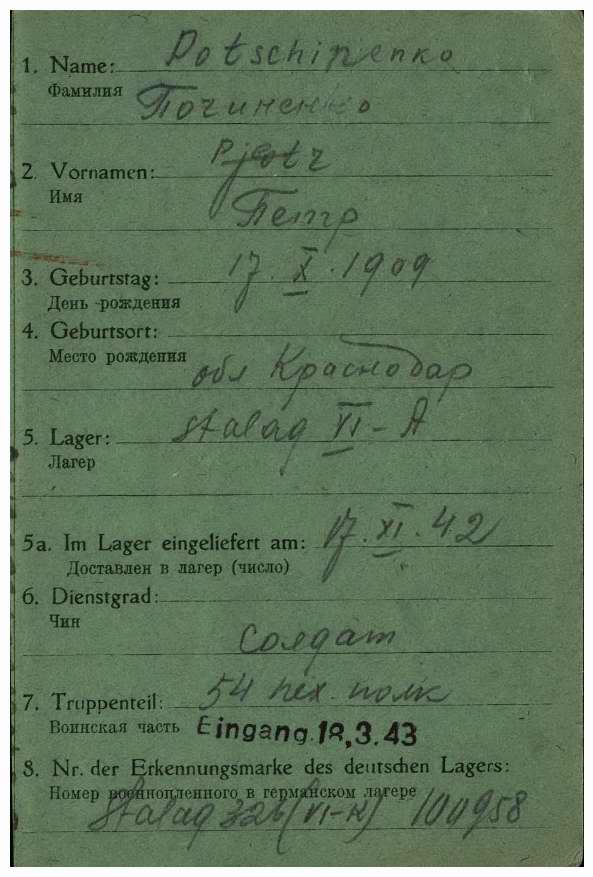 1. Name: Potschinenko
Фамилия Починенко
2. Vornamen: Pjotr
Имя
Петр
3. Geburtstag: 17. X. 1909
День рождения
4. Geburtsort:
Место рождения
обл Краснодар
5. Lager: Stalag VI-A
Лагер
5a. Im Lager eingeliefert am: 17. XI. 42
Доставлен в лагер (число)
6. Dienstgrad:
Чин
Солдат
7. Truppenteil: 54 пех. полк
Воинская часть Eingang. 18.3.43
8. Nr. der Erkennungsmarke des deutschen Lagers:
Номер военнопленного в германском лагере
Stalag 326 (VI-K) 100958